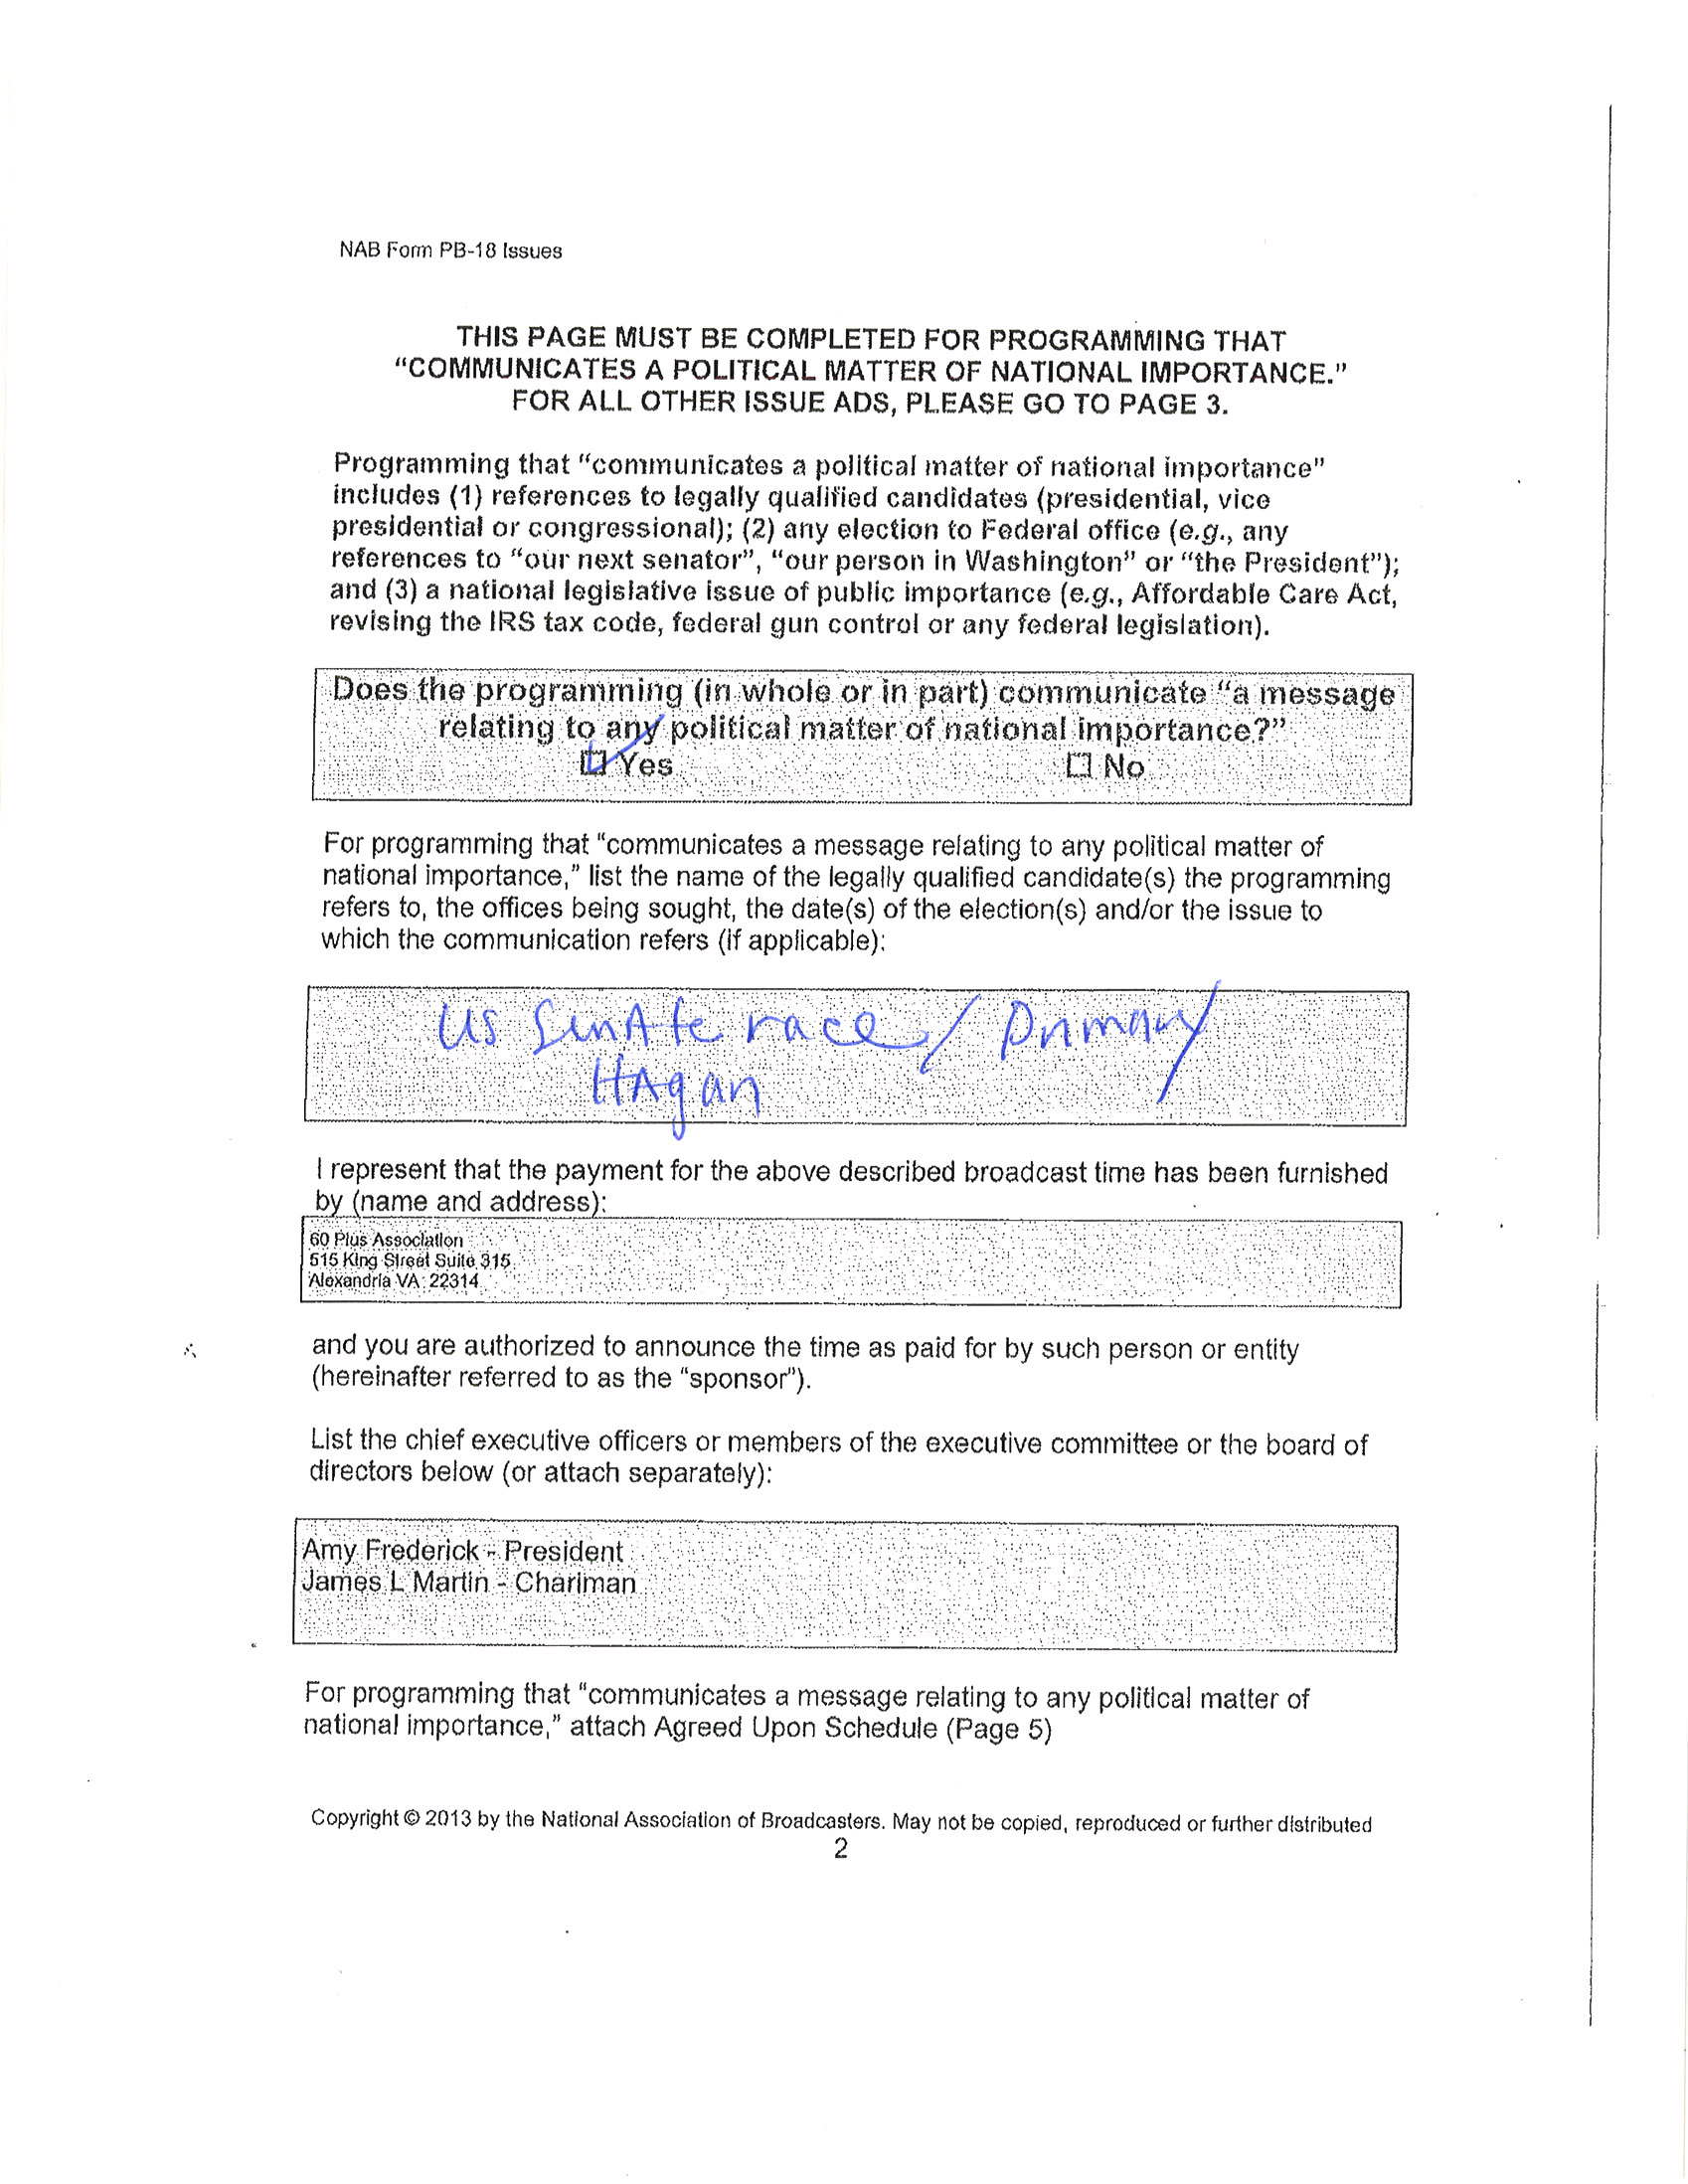 NAB Form PB-18 Issues
THIS PAGE MUST BE COMPLETED FOR PROGRAMMING THAT
“COMMUNICATES A POLITICAL MATTER OF NATIONAL IMPORTANCE.”
FOR ALL OTHER ISSUE ADS, PLEASE GO TO PAGE 3.
Programming that “communicates a political matter of national importance”
includes (1) references to legally qualified candidates (presidential, vice
presidential or congressional); (2) any election to Federal office (e.g., any
references to “our next senator”, “our person in Washington” or “the President”);
and (3) a national legislative issue of public importance (e.g., Affordable Care Act,
revising the IRS tax code, federal gun control or any federal legislation).
Does the programming (in whole or in part) communicate “a message
relating to any political matter of national importance?”
☑ Yes ☐ No
For programming that “communicates a message relating to any political matter of
national importance,” list the name of the legally qualified candidate(s) the programming
refers to, the offices being sought, the date(s) of the election(s) and/or the issue to
which the communication refers (if applicable):
US SenAte race / Primary
HAgan
I represent that the payment for the above described broadcast time has been furnished
by (name and address):
60 Plus Association
515 King Street Suite 315
Alexandria VA 22314
and you are authorized to announce the time as paid for by such person or entity
(hereinafter referred to as the “sponsor”).
List the chief executive officers or members of the executive committee or the board of
directors below (or attach separately):
Amy Frederick - President
James L Martin - Chariman
For programming that “communicates a message relating to any political matter of
national importance,” attach Agreed Upon Schedule (Page 5)
Copyright © 2013 by the National Association of Broadcasters. May not be copied, reproduced or further distributed
2